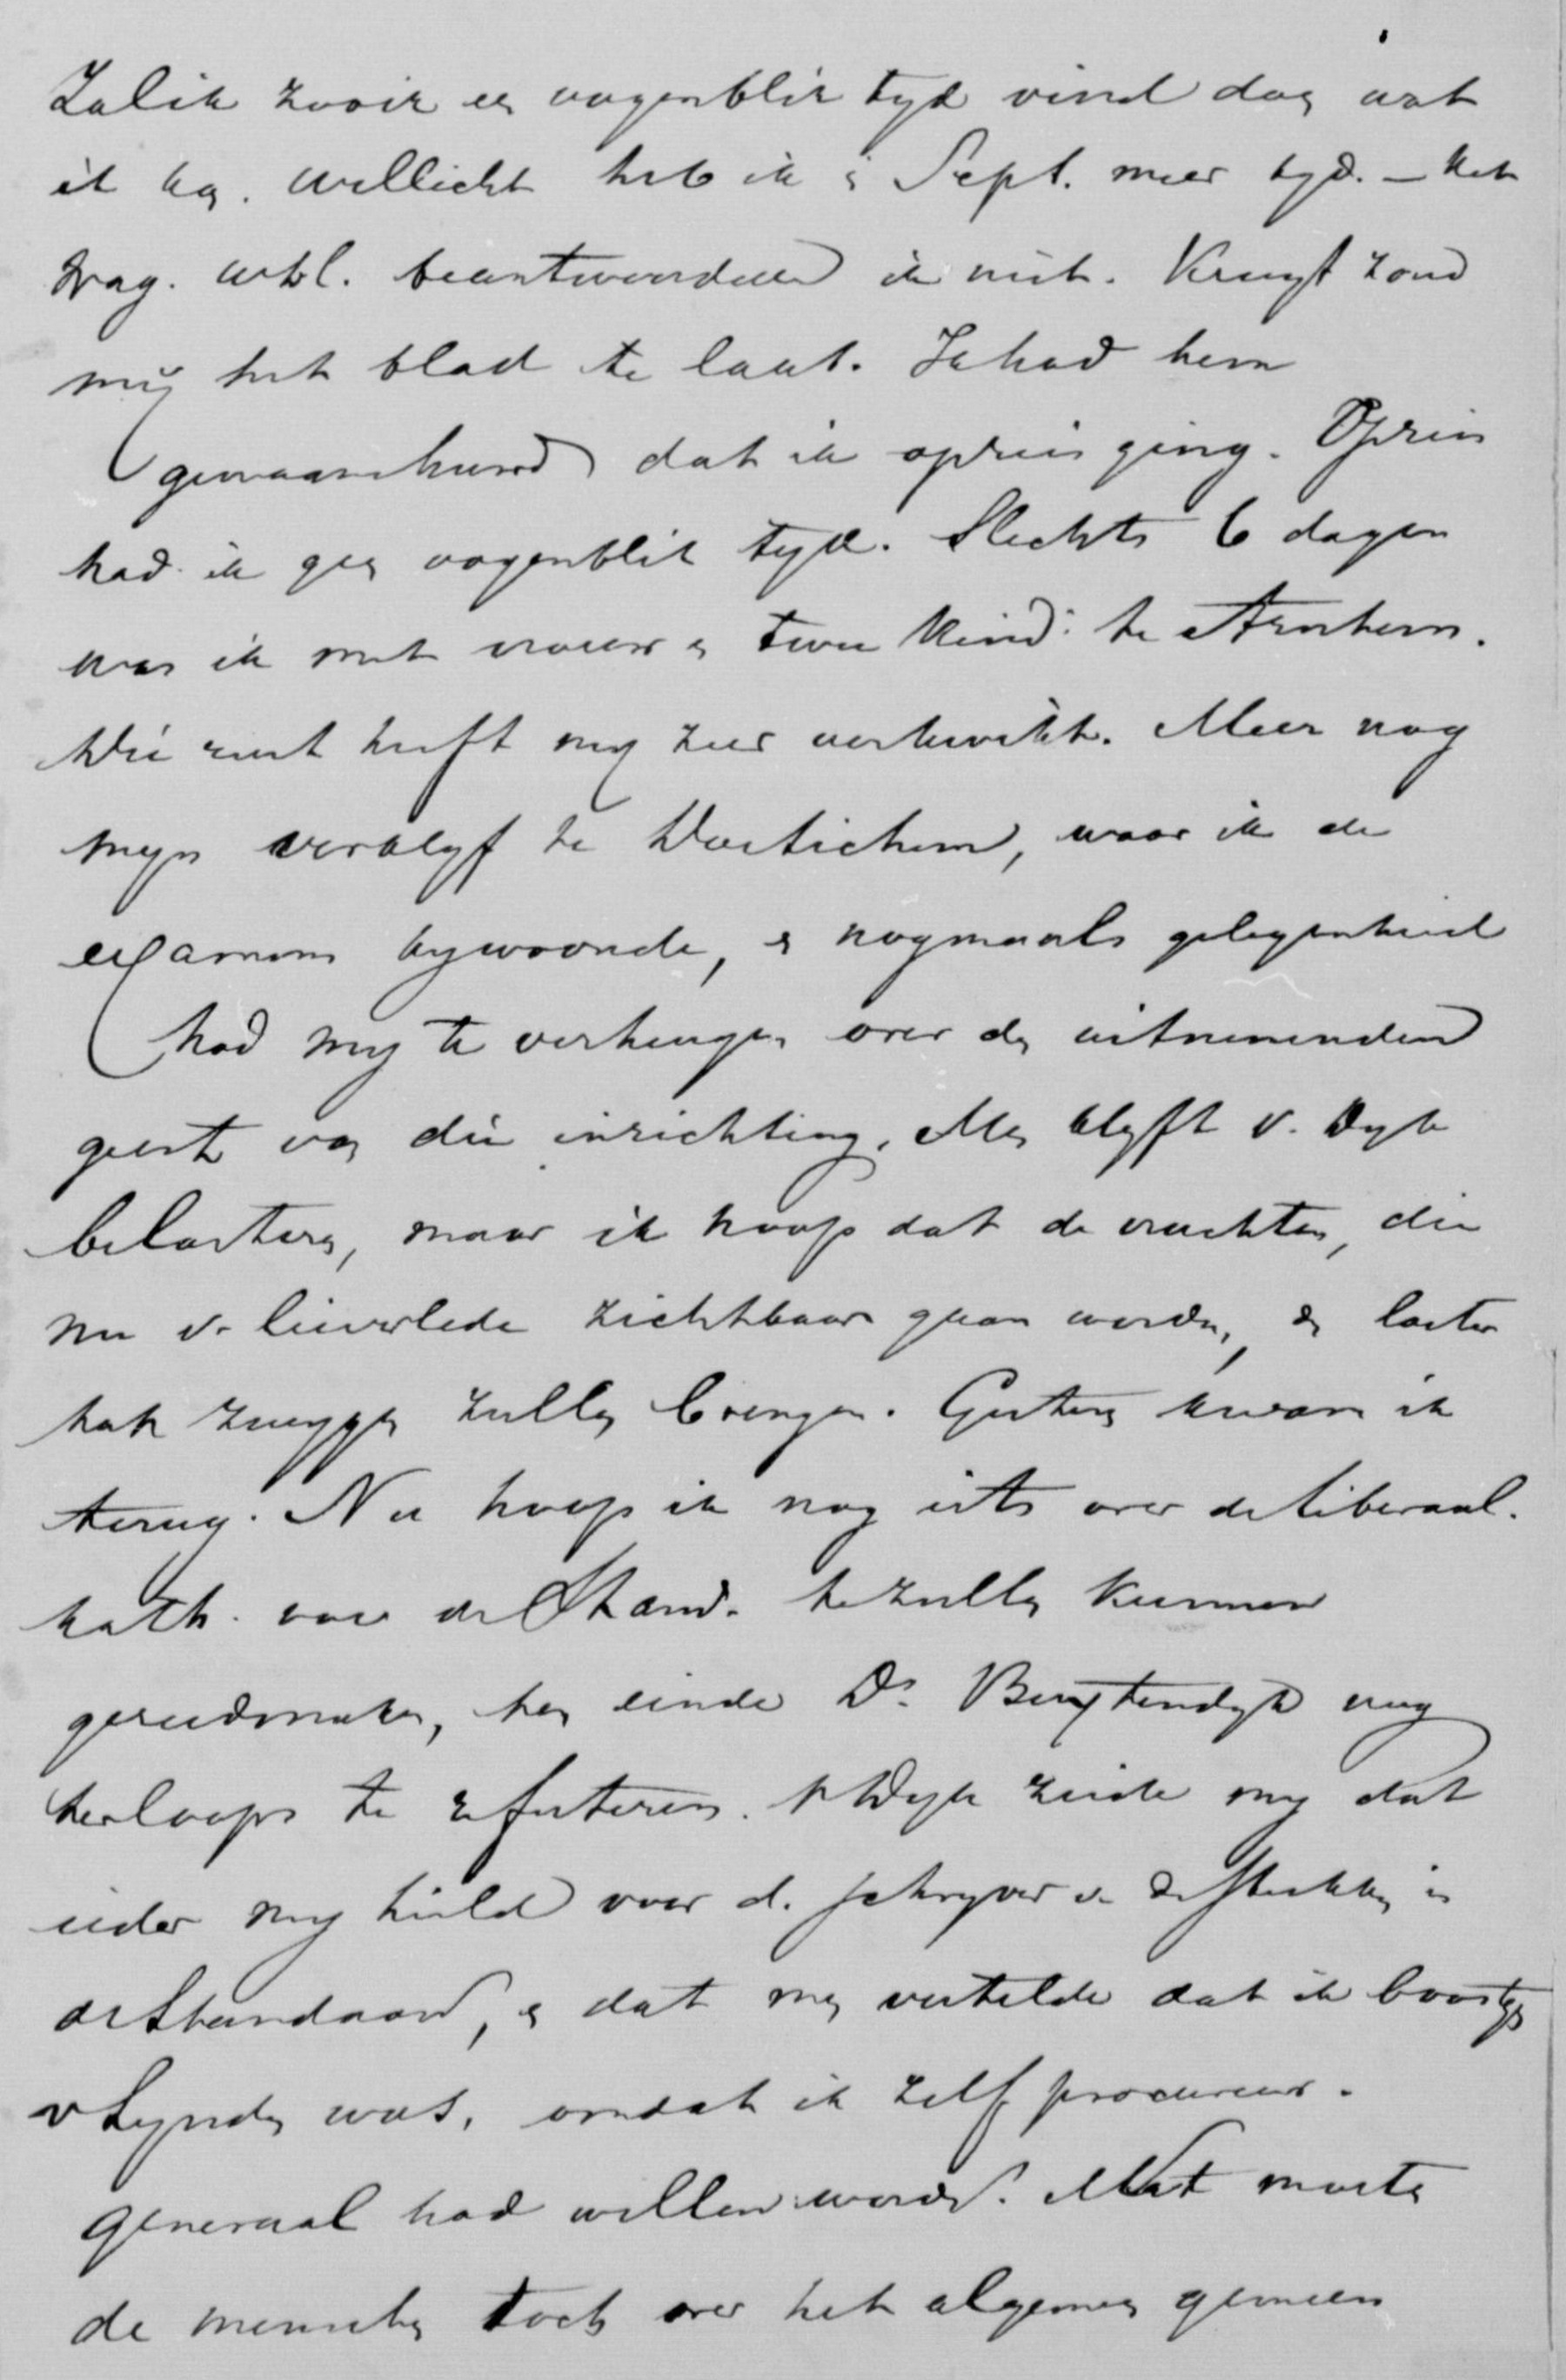 Zal ik zooir een oogenblik tyd vind dan wat
ik kan. Wellicht heb ik in Sept. meer tyd. – Het
Wag. Wbl. beantwoordde ik niet. Kruyt zond
mij het blad te laat. Ik had hem
gewaarschuwd dat ik op reis ging. Op reis
had ik geen oogenblik tyd. Slechts 6 dagen
was ik met vrouw en twee kind: te Arnhem.
Die rust heeft my zeer verkwikt. Meer nog
myn verblyf te Doetichem, waar ik de
examens bywoonde, en nogmaals gelegenheid
had my te verheugen over den uitnemenden
geest van die inrichting. Men blyft v. Dyk
belasteren, maar ik hoop dat de vruchten, die
nu v. lieverlede zichtbaar gaan worden, den laster
tot zwygen zullen brengen. Gisteren kwam ik
terug. Nu hoop ik nog iets over de liberaal.
kath. voor de Stand. te zullen kunnen
gereedmaken, ten einde Ds. Buytendyk nog
terloops te refuteren. v Dyk zeide my dat
ieder my hield voor d. schryver v. de stukken in
de Standaard, en dat men vertelde dat ik boos op
v Lynden was, omdat ik zelf procureur-
generaal had willen worden. Wat moeten
de menschen toch over het algemeen gemeen